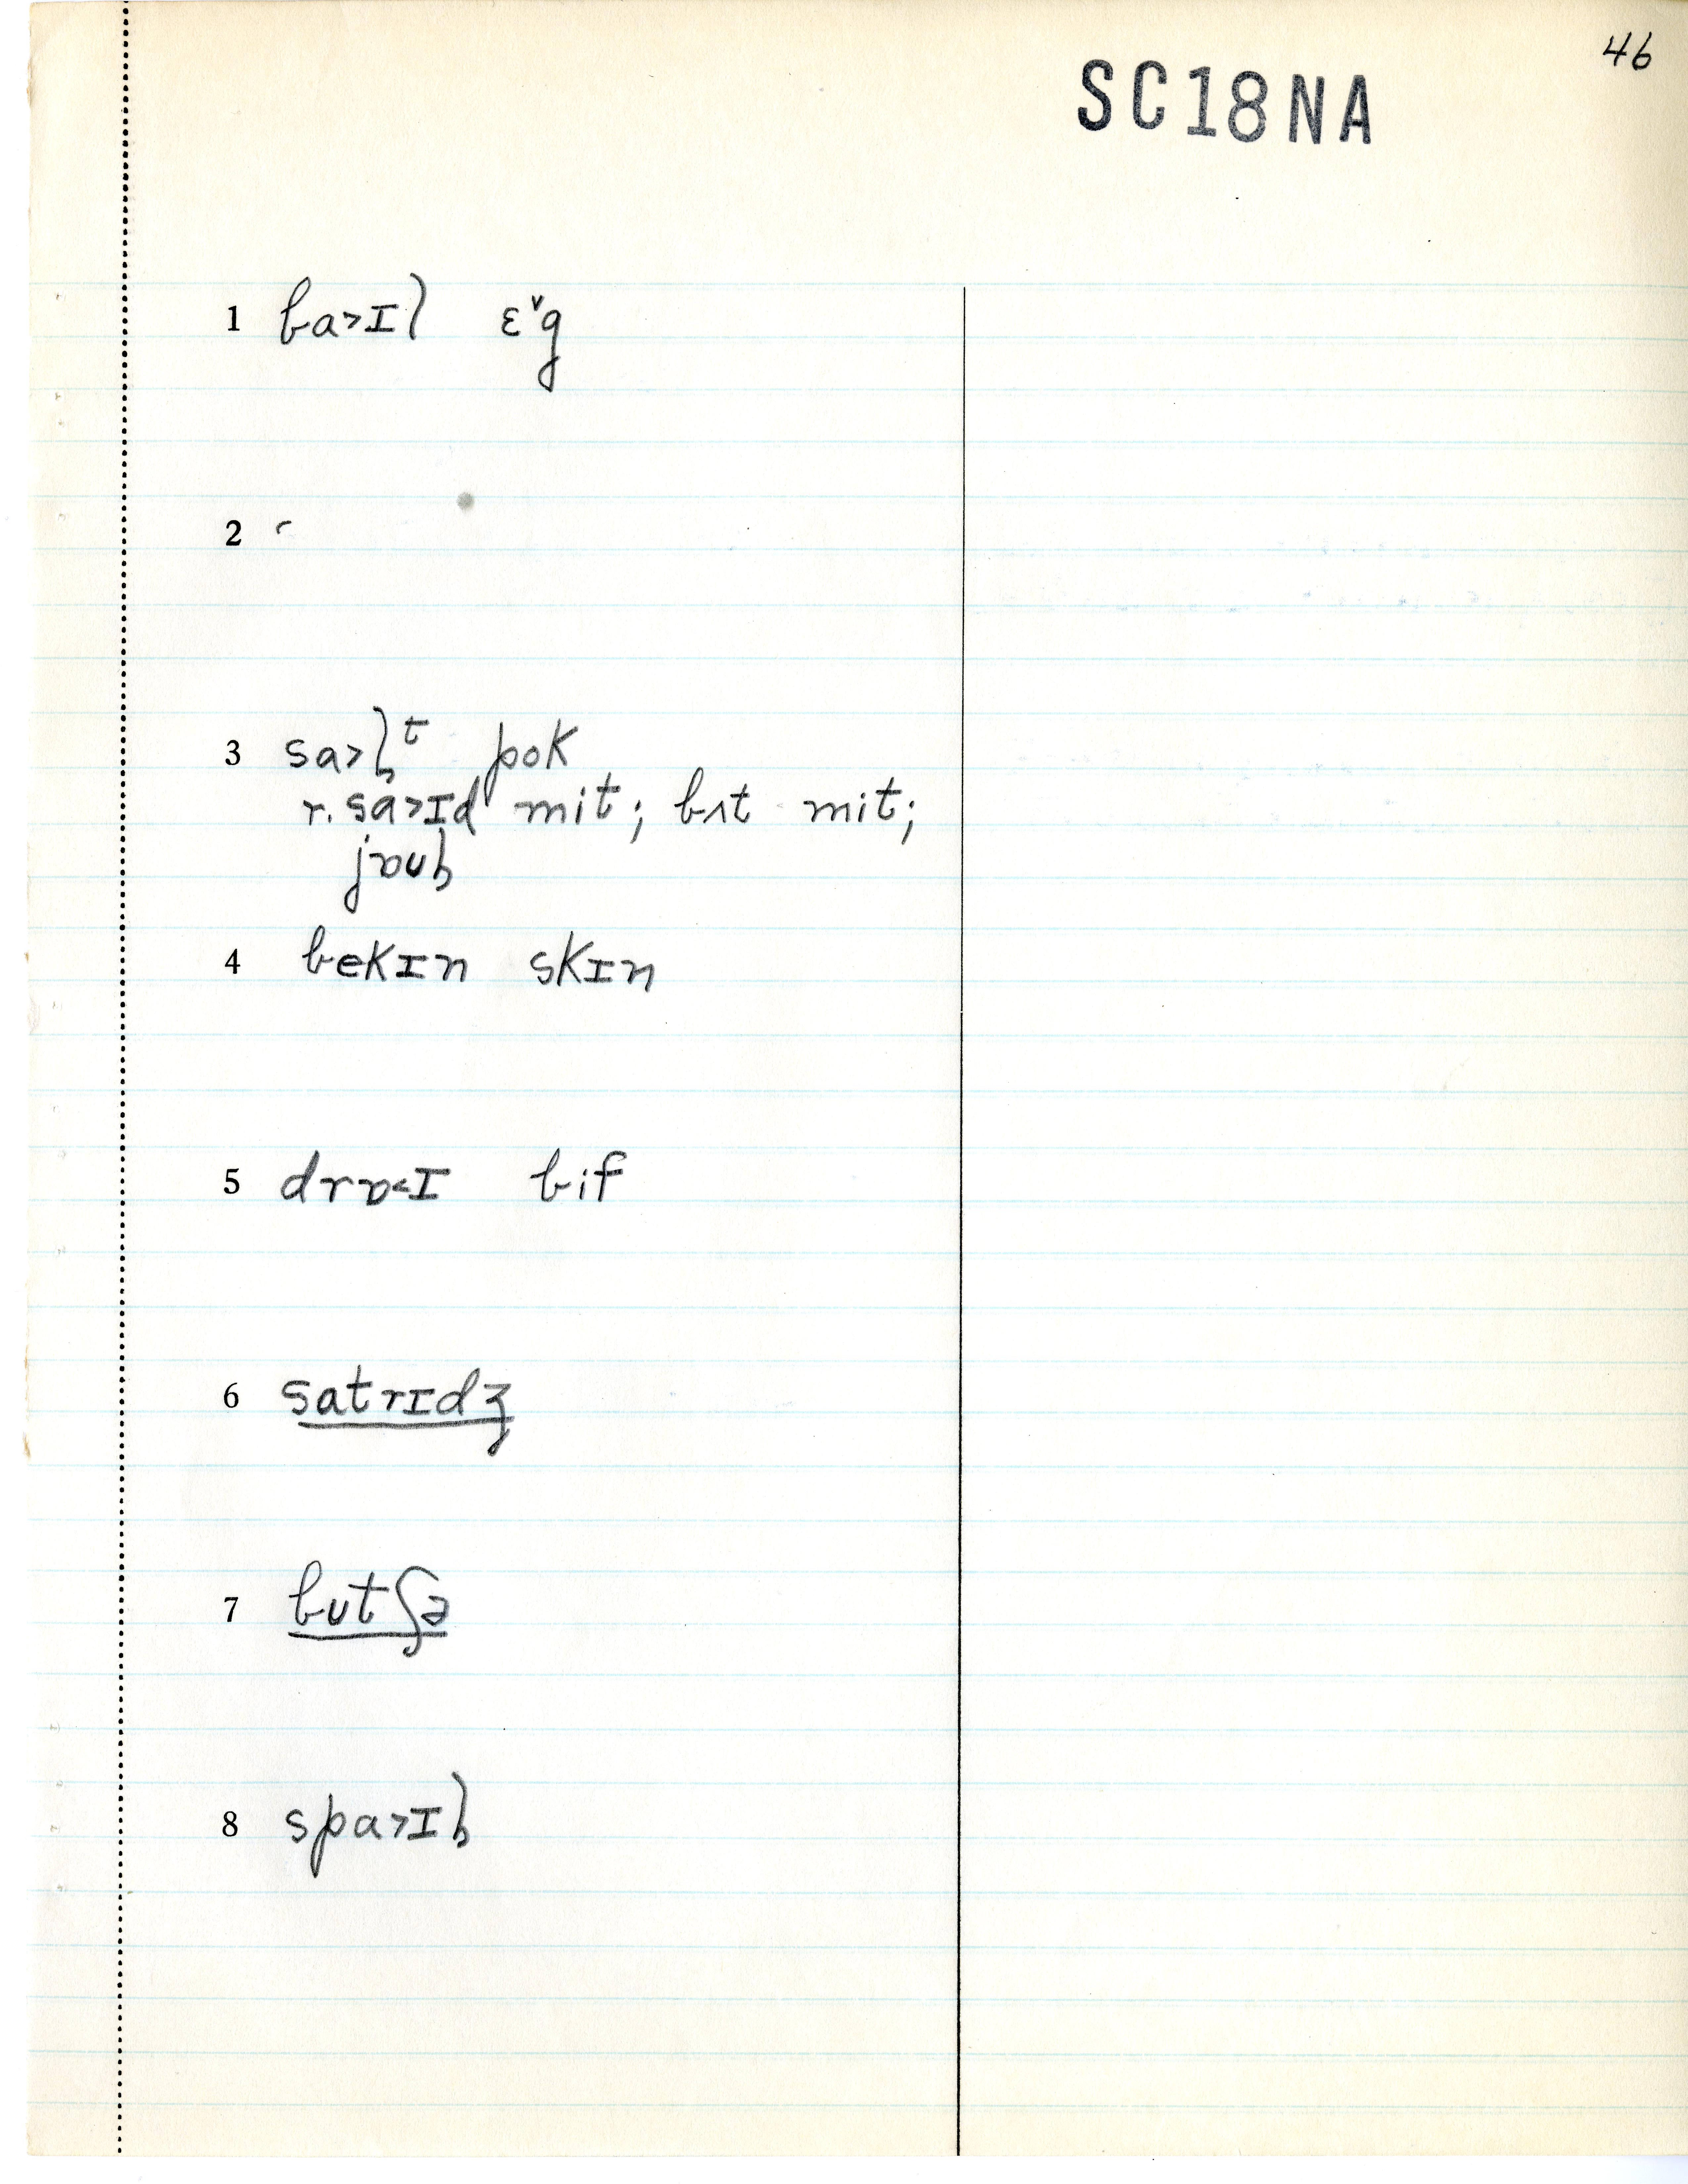 46
SC18NA
1 ba˃ɪl ɛ˅g
2 -
3 sa˃lᵗ pok
r. sa˃ɪd mit; bʌt mit;
jɒʊl
4 bekɪn skɪn
5 drɒ˂ɪ bif
6 satrɪdʒ
7 bʊtʃə
8 spa˃ɪl